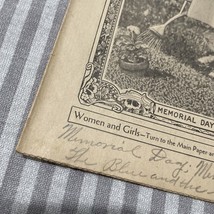 MEMORIAL DAY
Women and Girls—Turn to the Main Paper
Memorial Day;
The Blue and the